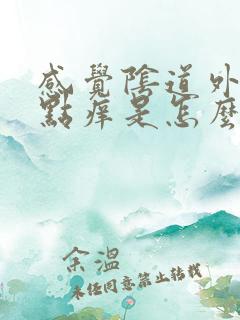 感覺陰道外
點癢是怎麼
余溫
未经同意禁止转载